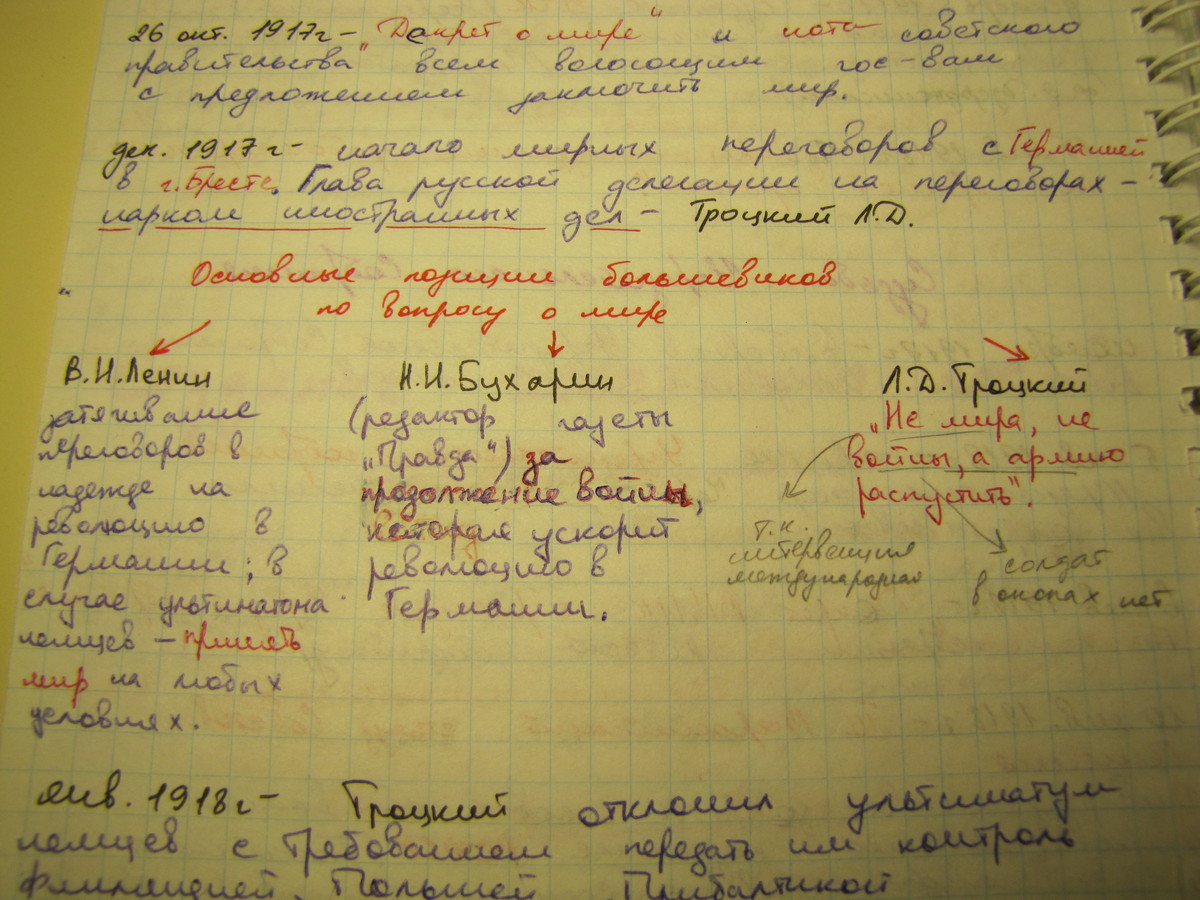 26 окт. 1917г – "Декрет о мире" и нота советского
правительства всем воюющим гос-вам
с предложением заключить мир.
дек. 1917г – начало мирных переговоров с Германией
в г.Бресте. Глава русской делегации на переговорах –
нарком иностранных дел – Троцкий Л.Д.
Основные позиции большевиков
по вопросу о мире
В.И.Ленин
затягивание
переговоров в
надежде на
революцию в
Германии; в
случае ультиматона
немцев – принять
мир на любых
условиях.
Н.И.Бухарин
(редактор газеты
„Правда") за
продолжение войны,
которая ускорит
революцию в
Германии.
Л.Д.Троцкий
„Не мира, не
войны, а армию
распустить".
т.к.
интервенция
международная
солдат
в окопах нет
янв. 1918г – Троцкий отклонил ультиматум
немцев с требованием передать им контроль
Финляндией, Польшей, Прибалтикой